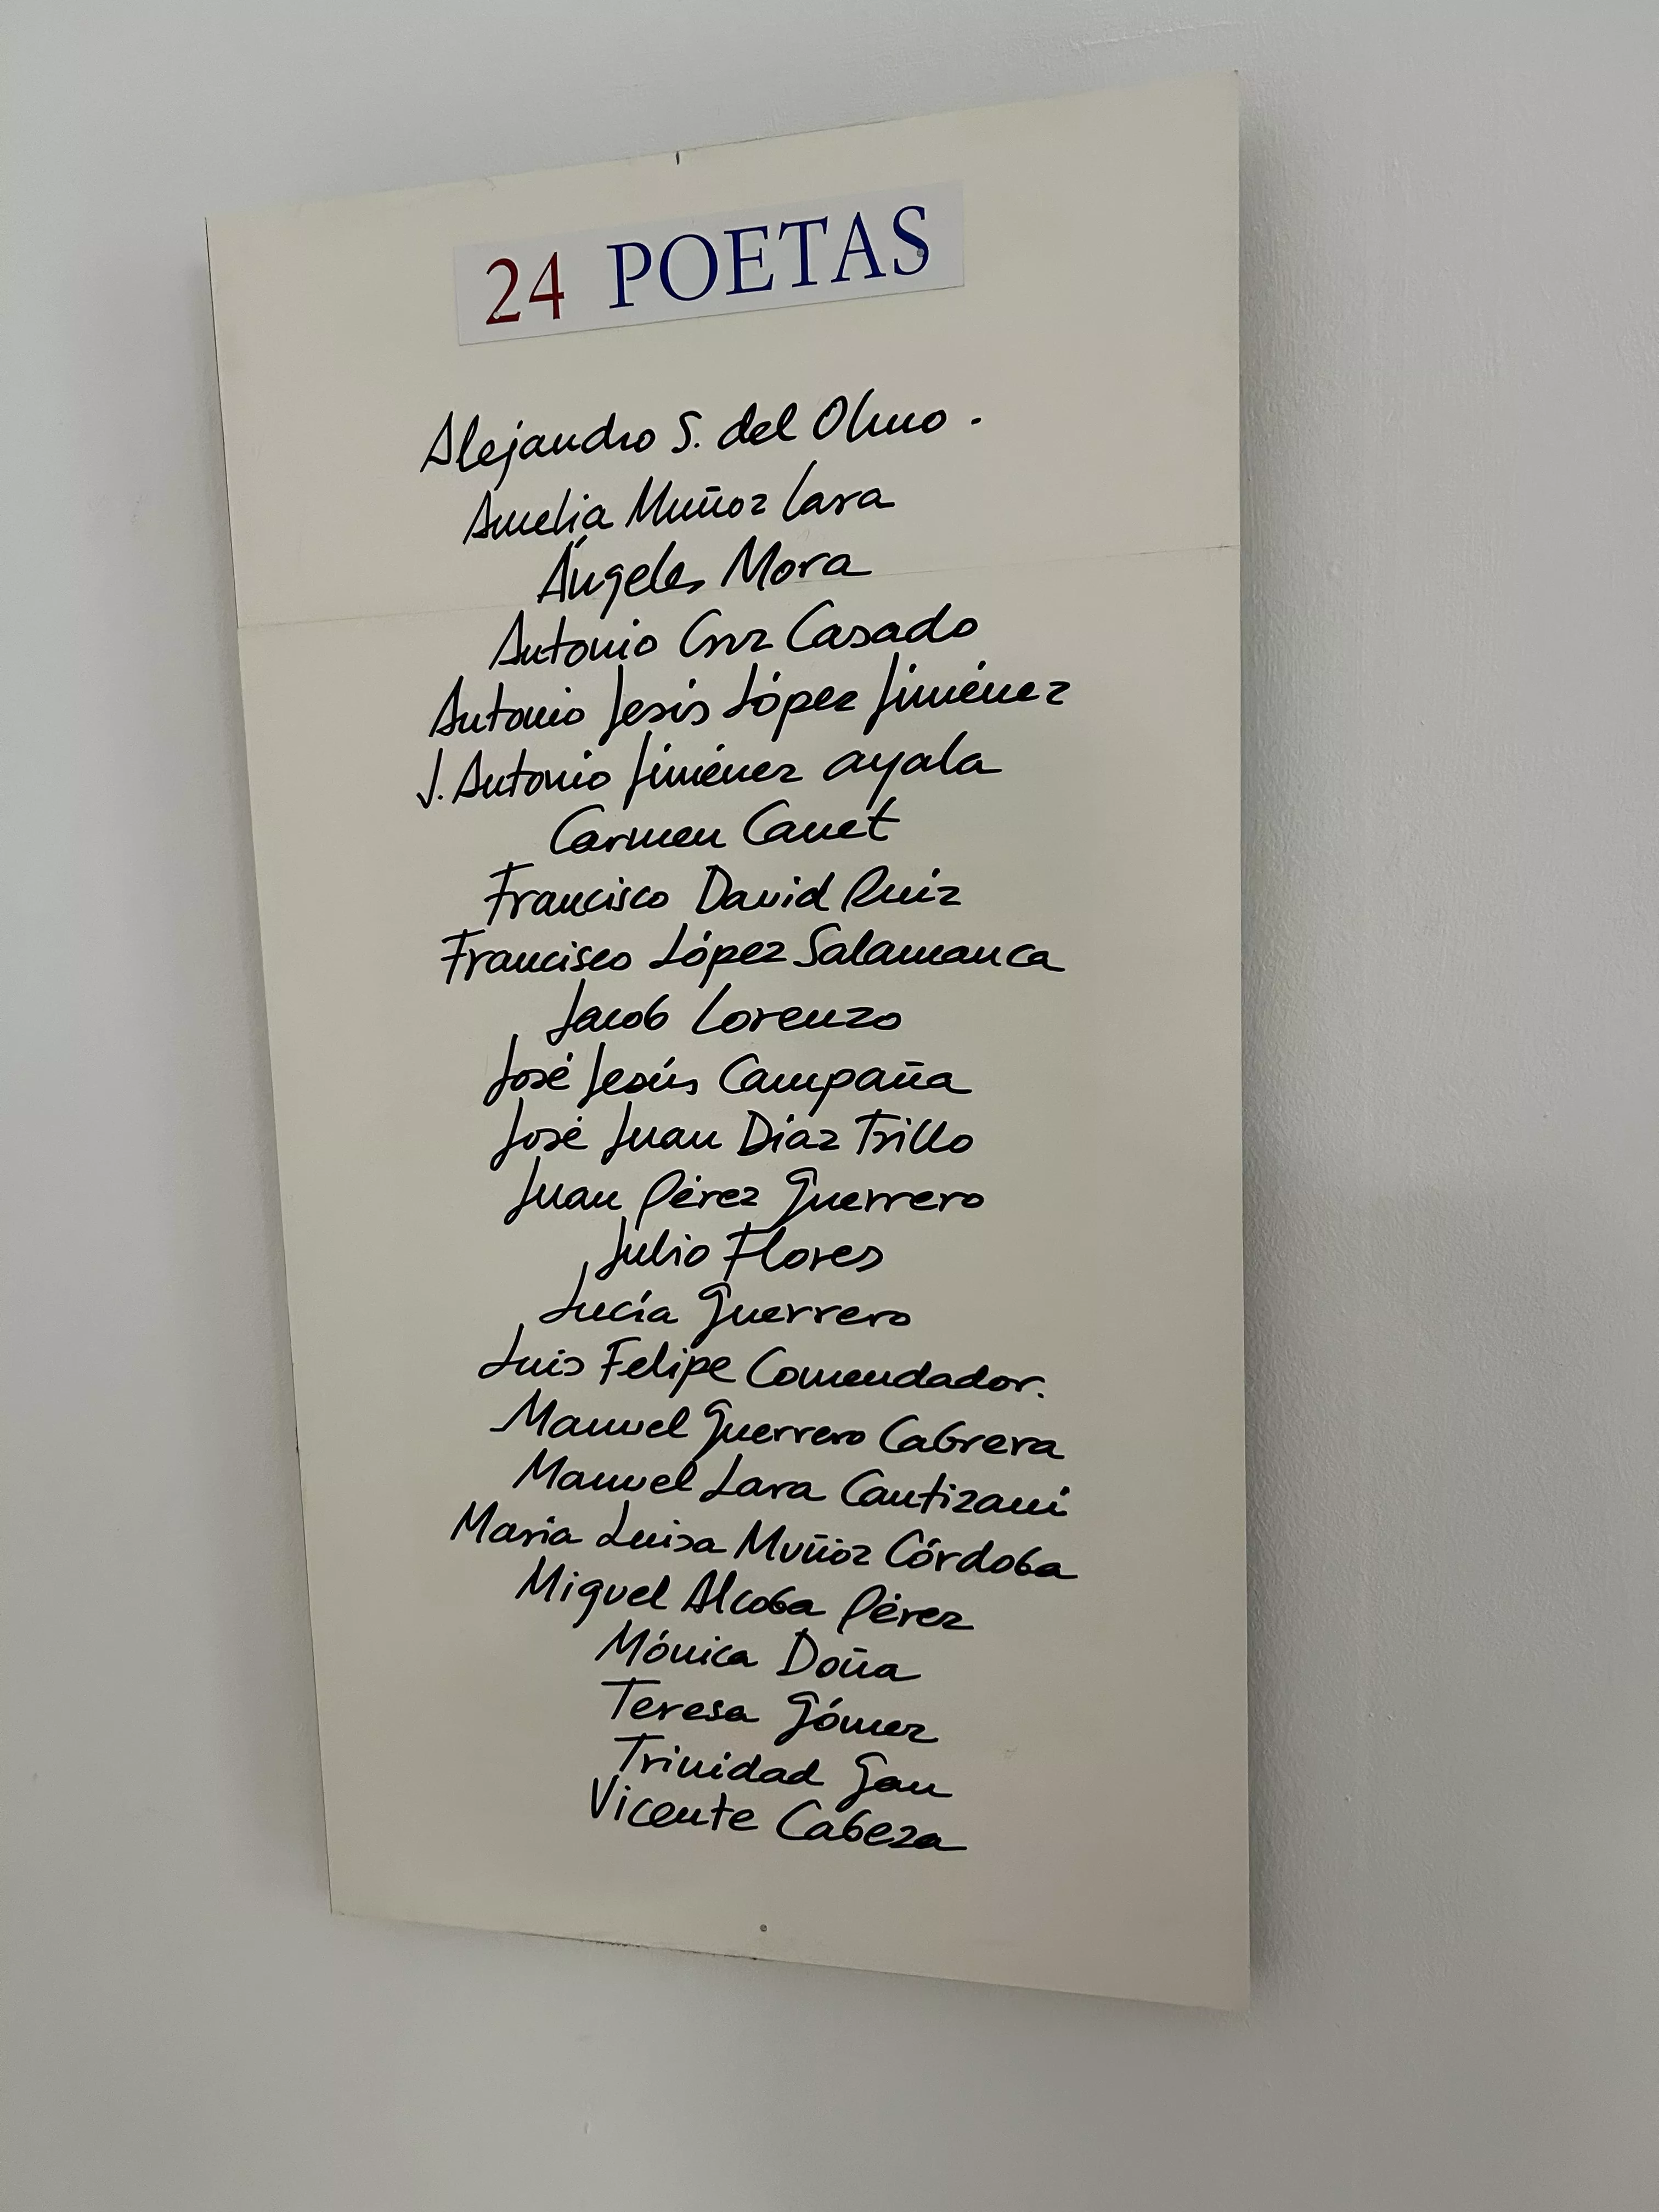 24 POETAS
Alejandro S. del Olmo.
Amelia Muñoz Lara
Ángeles Mora
Antonio Cruz Casado
Antonio Jesús López Jiménez
J. Antonio Jiménez ayala
Carmen Canet
Francisco David Ruiz
Francisco López Salamanca
Jacob Lorenzo
José Jesús Campaña
José Juan Díaz Trillo
Juan Pérez Guerrero
Julio Flores
Lucía Guerrero
Luis Felipe Comendador.
Manuel Guerrero Cabrera
Manuel Lara Cantizani
Maria Luisa Muñoz Córdoba
Miguel Alcoba Pérez
Mónica Doña
Teresa Gómez
Trinidad Gan
Vicente Cabeza